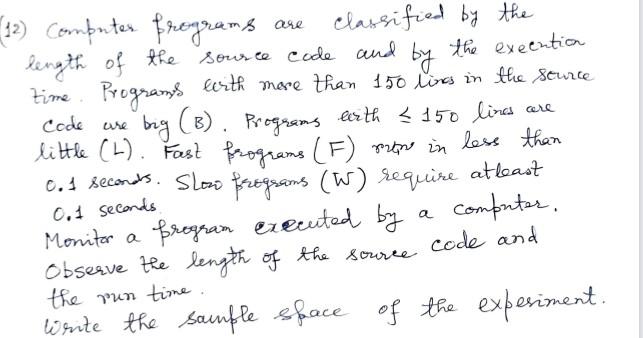 (12) Computer programs are classified by the
length of the source code and by the execution
time. Programs with more than 150 lines in the source
code are big (B). Programs with ≤ 150 lines are
little (L). Fast programs (F) runs in less than
0.1 seconds. Slow programs (W) require atleast
0.1 seconds.
Monitor a program executed by a computer.
Observe the length of the source code and
the run time.
Write the sample space of the experiment.